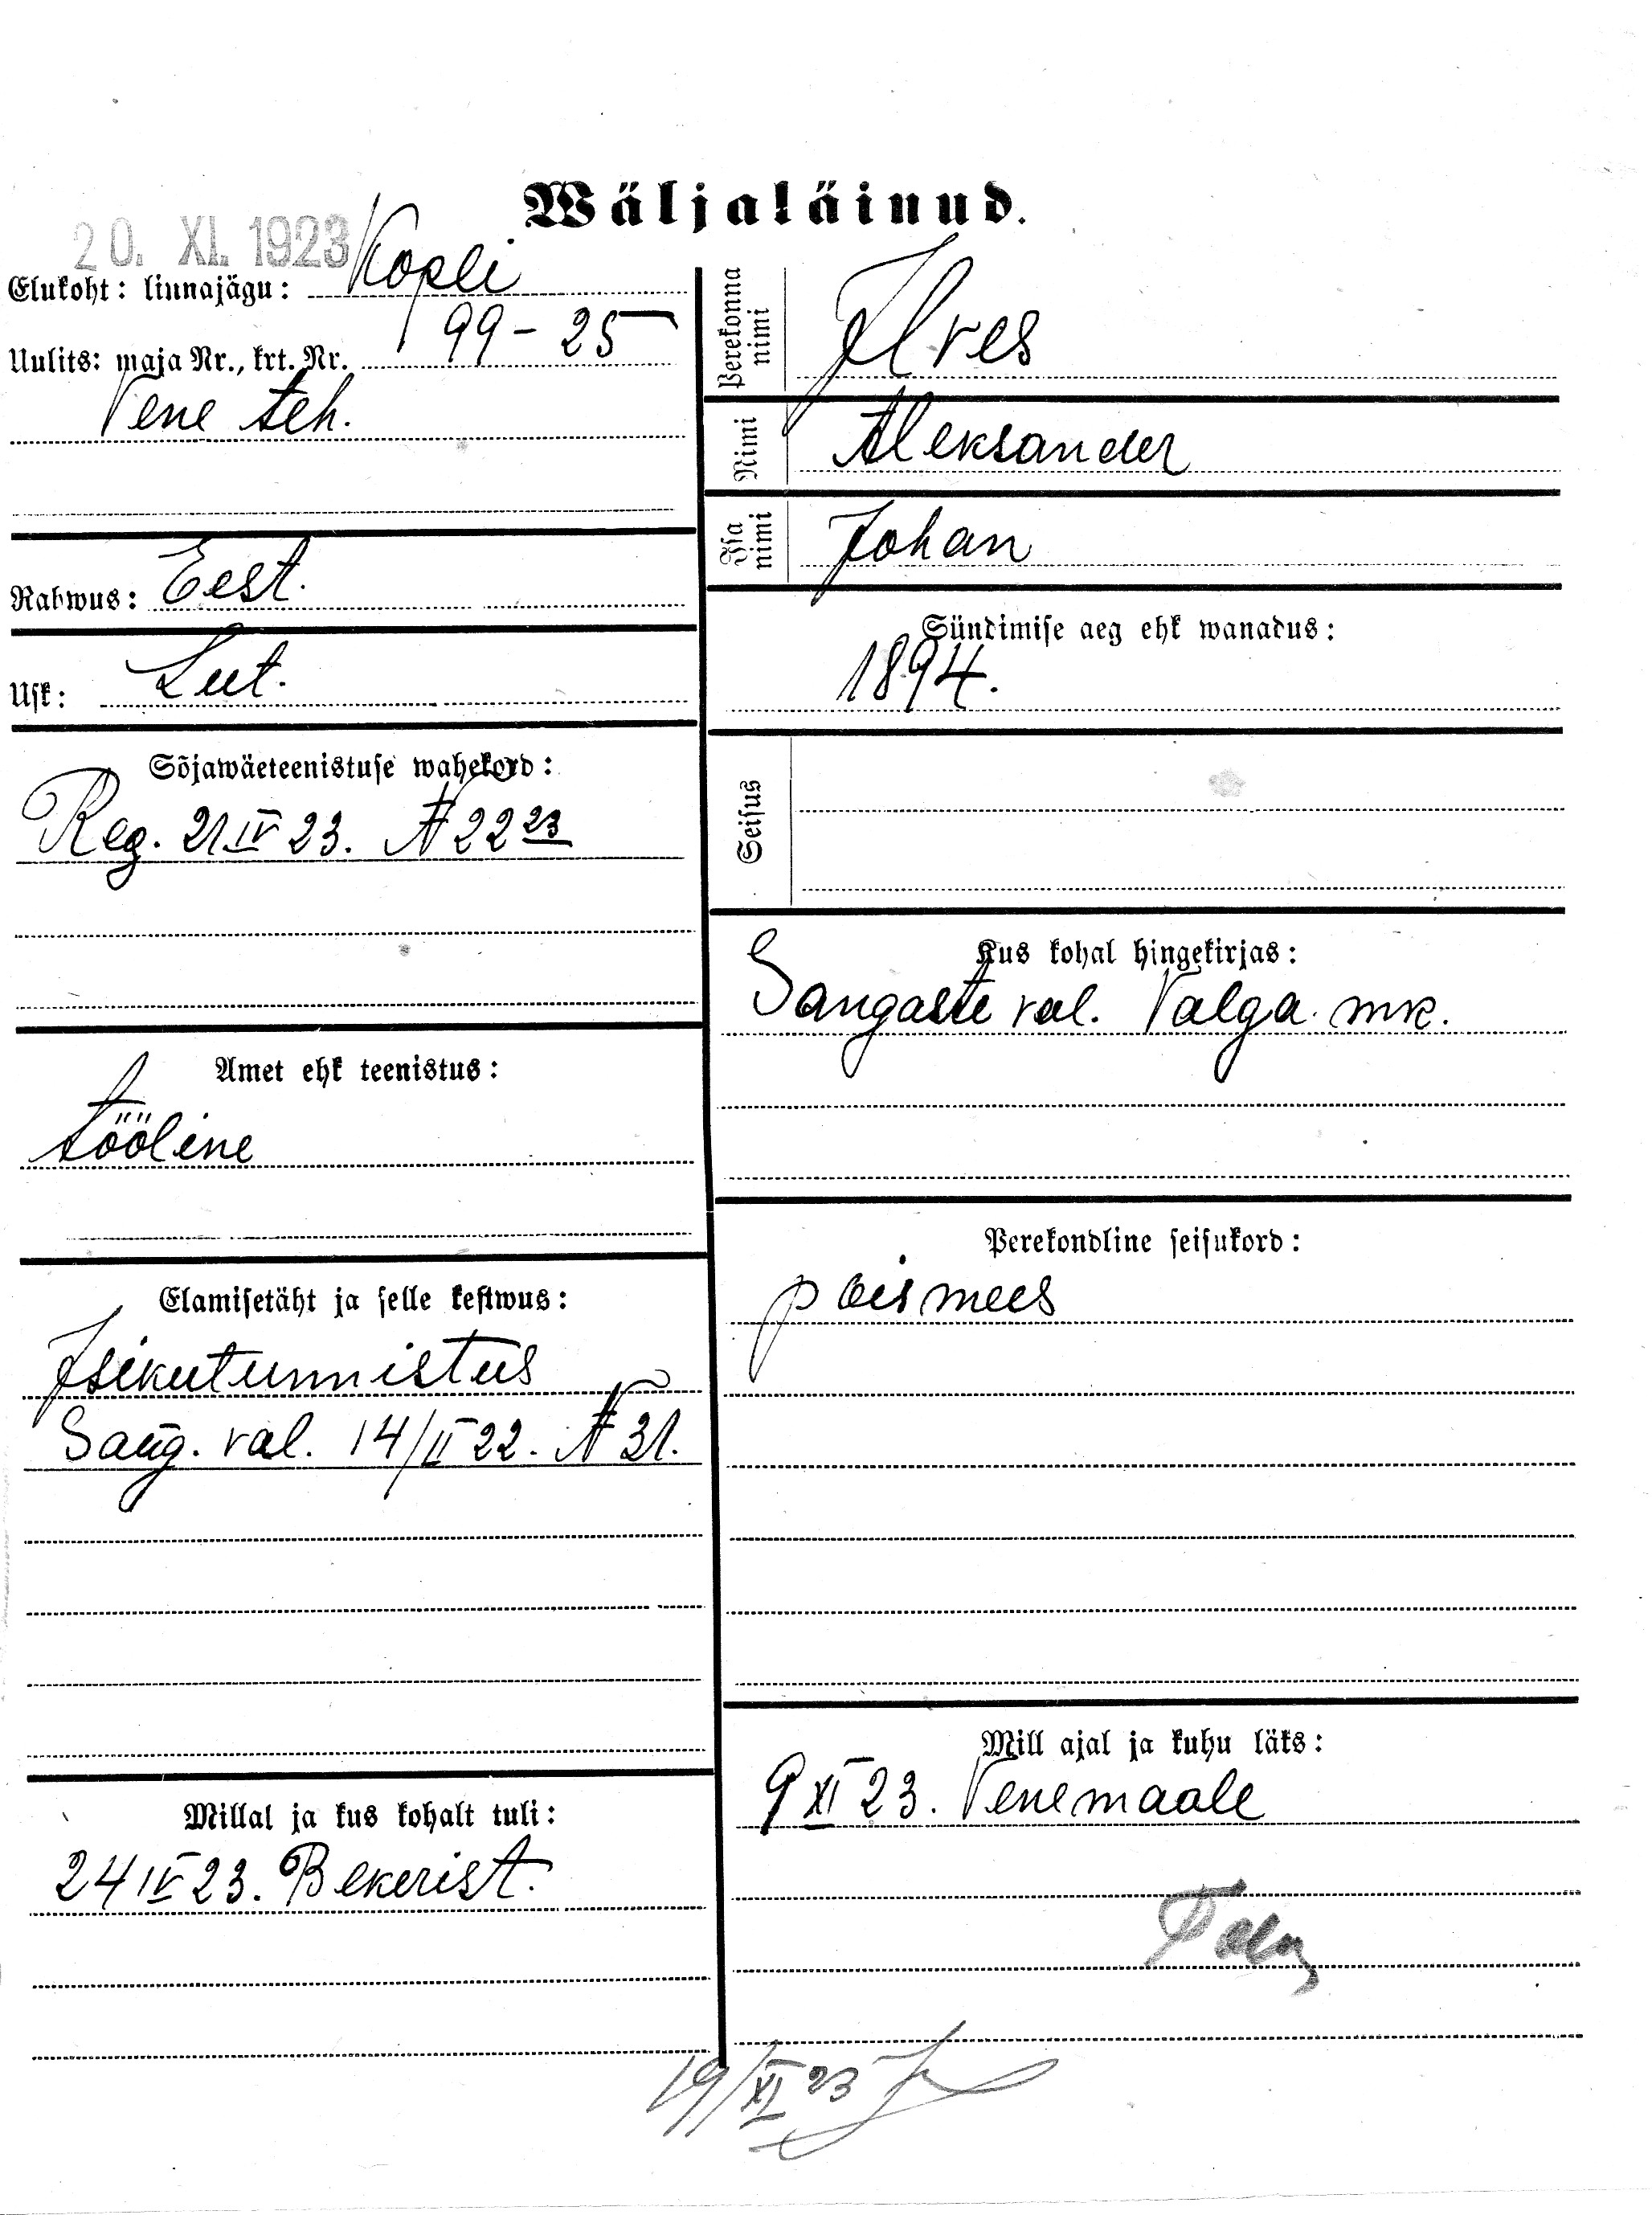 Wäljaläinud.
20. XI. 1923
Elukoht: linnajägu: Kopli
Uulits: maja Nr., krt. Nr. 99-25
Vene teh.
Rahwus: Eest.
Usk: Lut.
Sõjawäeteenistuse wahekord:
Reg. 21 IV 23. № 2223
Amet ehk teenistus:
tööline
Elamisetäht ja selle kestwus:
Isikutunnistus
Sang. val. 14/II 22. № 31.
Millal ja kus kohalt tuli:
24 IV 23. Bekerist.
Perekonna nimi Ilves
Nimi Aleksander
Isa nimi Johan
Sündimise aeg ehk wanadus:
1894.
Seisus
Kus kohal hingekirjas:
Sangaste val. Valga mk.
Perekondline seisukord:
poismees
Mill ajal ja kuhu läks:
9 XI 23. Venemaale
19/XI 23